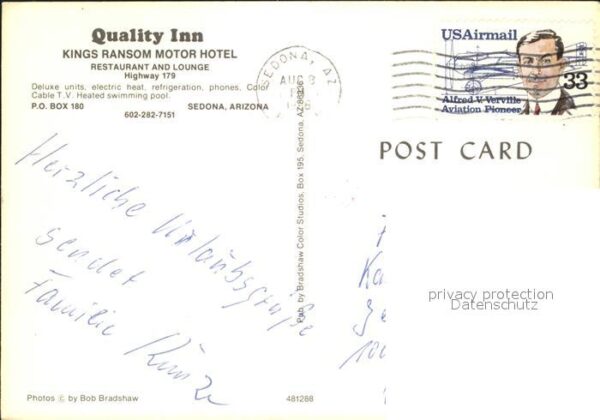 Quality Inn
KINGS RANSOM MOTOR HOTEL
RESTAURANT AND LOUNGE
Highway 179
Deluxe units, electric heat, refrigeration, phones, Color
Cable T.V. Heated swimming pool.
P.O. BOX 180 SEDONA, ARIZONA
602-282-7151
SEDONA, AZ
AUG 8
USAirmail
33
Alfred V. Verville
Aviation Pioneer
POST CARD
Herzliche Urlaubsgrüße
sendet
Familie Kunze
Pub. by Bradshaw Color Studios, Box 195, Sedona, AZ 86336
privacy protection
Datenschutz
Photos © by Bob Bradshaw
481288